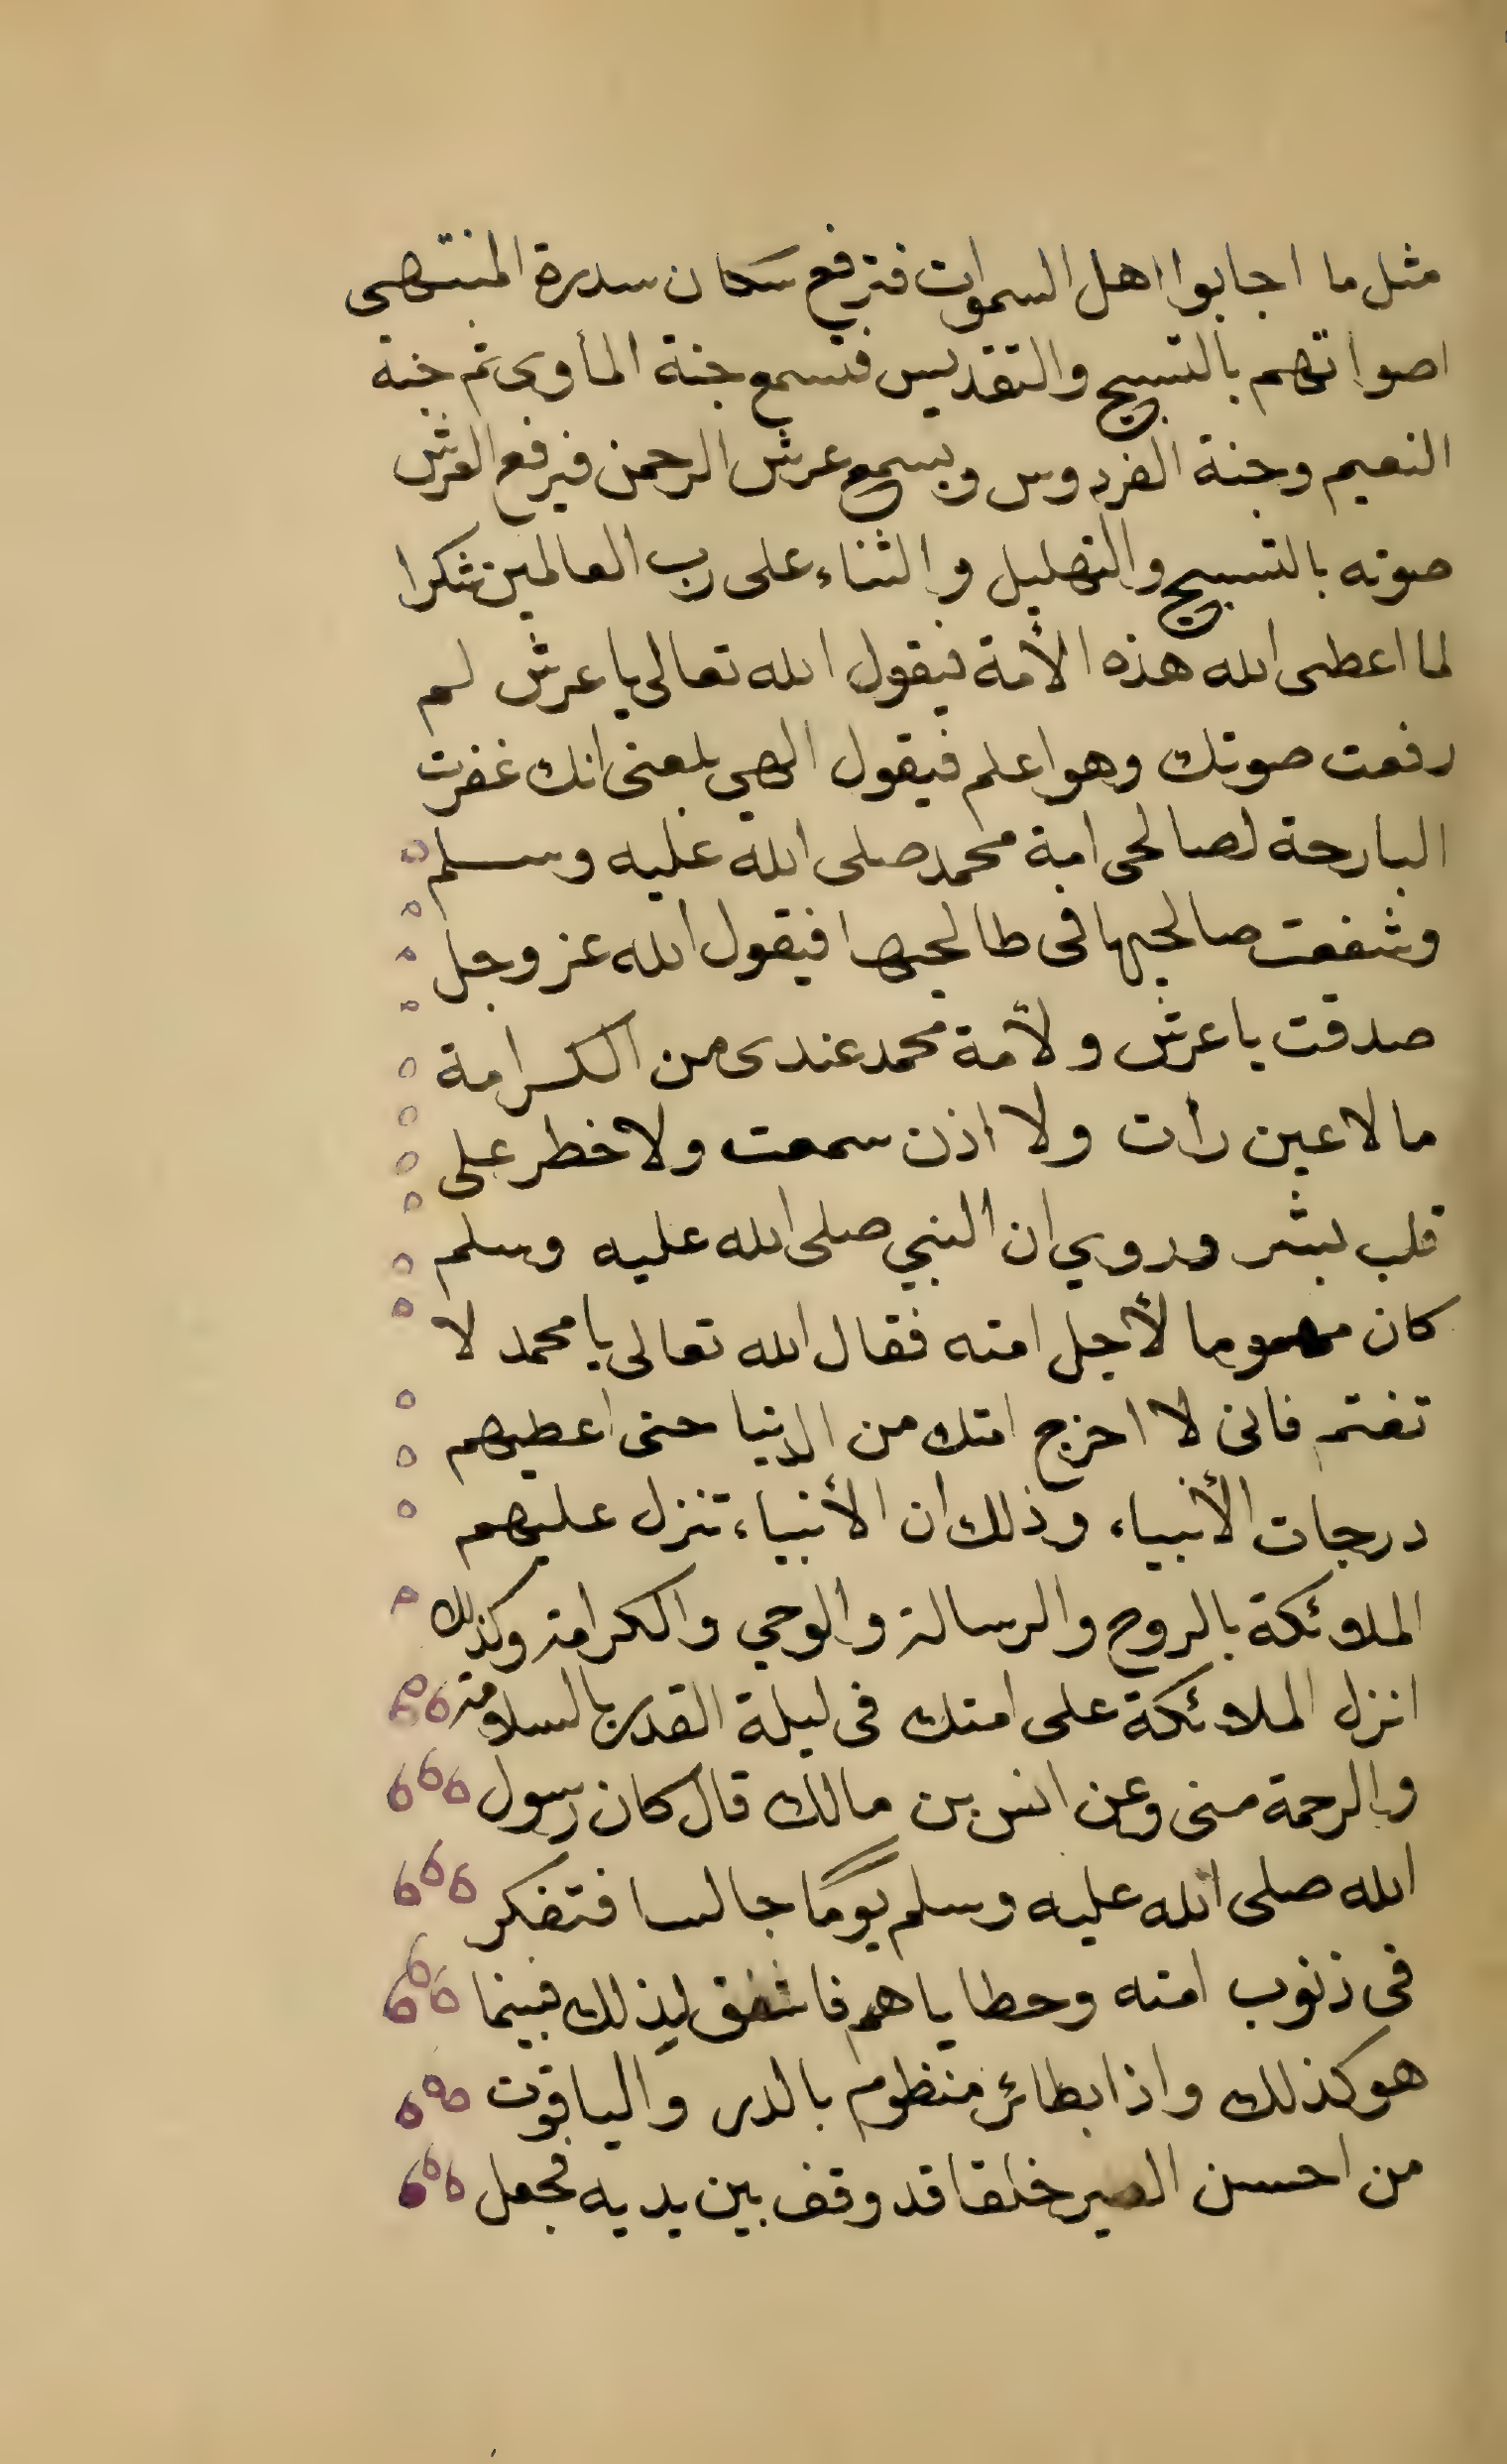 مثل ما اجابوا اهل السموات فترفع سكان سدرة المنتهى
اصواتهم بالتسبيح والتقديس فتسمع جنة المأوى ثم جنة
النعيم وجنة الفردوس ويسمع عرش الرحمن فيرفع العرش
صوته بالتسبيح والتهليل والثناء على رب العالمين شكرا
لما اعطى الله هذه الأمة فيقول الله تعالى يا عرش لم
رفعت صوتك وهو اعلم فيقول الهي بلغنى انك غفرت
البارحة لصالحى امة محمد صلى الله عليه وسلم
وشفعت صالحيها فى طالحيها فيقول الله عز وجل
صدقت يا عرش ولأمة محمد عندى من الكرامة
ما لا عين رأت ولا اذن سمعت ولا خطر على
قلب بشر وروي ان النبي صلى الله عليه وسلم
كان مهموما لأجل امته فقال الله تعالى يا محمد لا
تغتم فانى لا اخرج امتك من الدنيا حتى اعطيهم
درجات الأنبياء وذلك ان الأنبياء تنزل عليهم
الملائكة بالروح والرسالة والوحي والكرامة وكذلك
انزل الملائكة على امتك فى ليلة القدر بالسلامة
والرحمة منى وعن انس بن مالك قال كان رسول
الله صلى الله عليه وسلم يوما جالسا فتفكر
فى ذنوب امته وحطاياهم فاشفق لذلك فبينما
هو كذلك واذا بطائر منظوم بالدر والياقوت
من احسن الصير خلقا قد وقف بين يديه فجعل